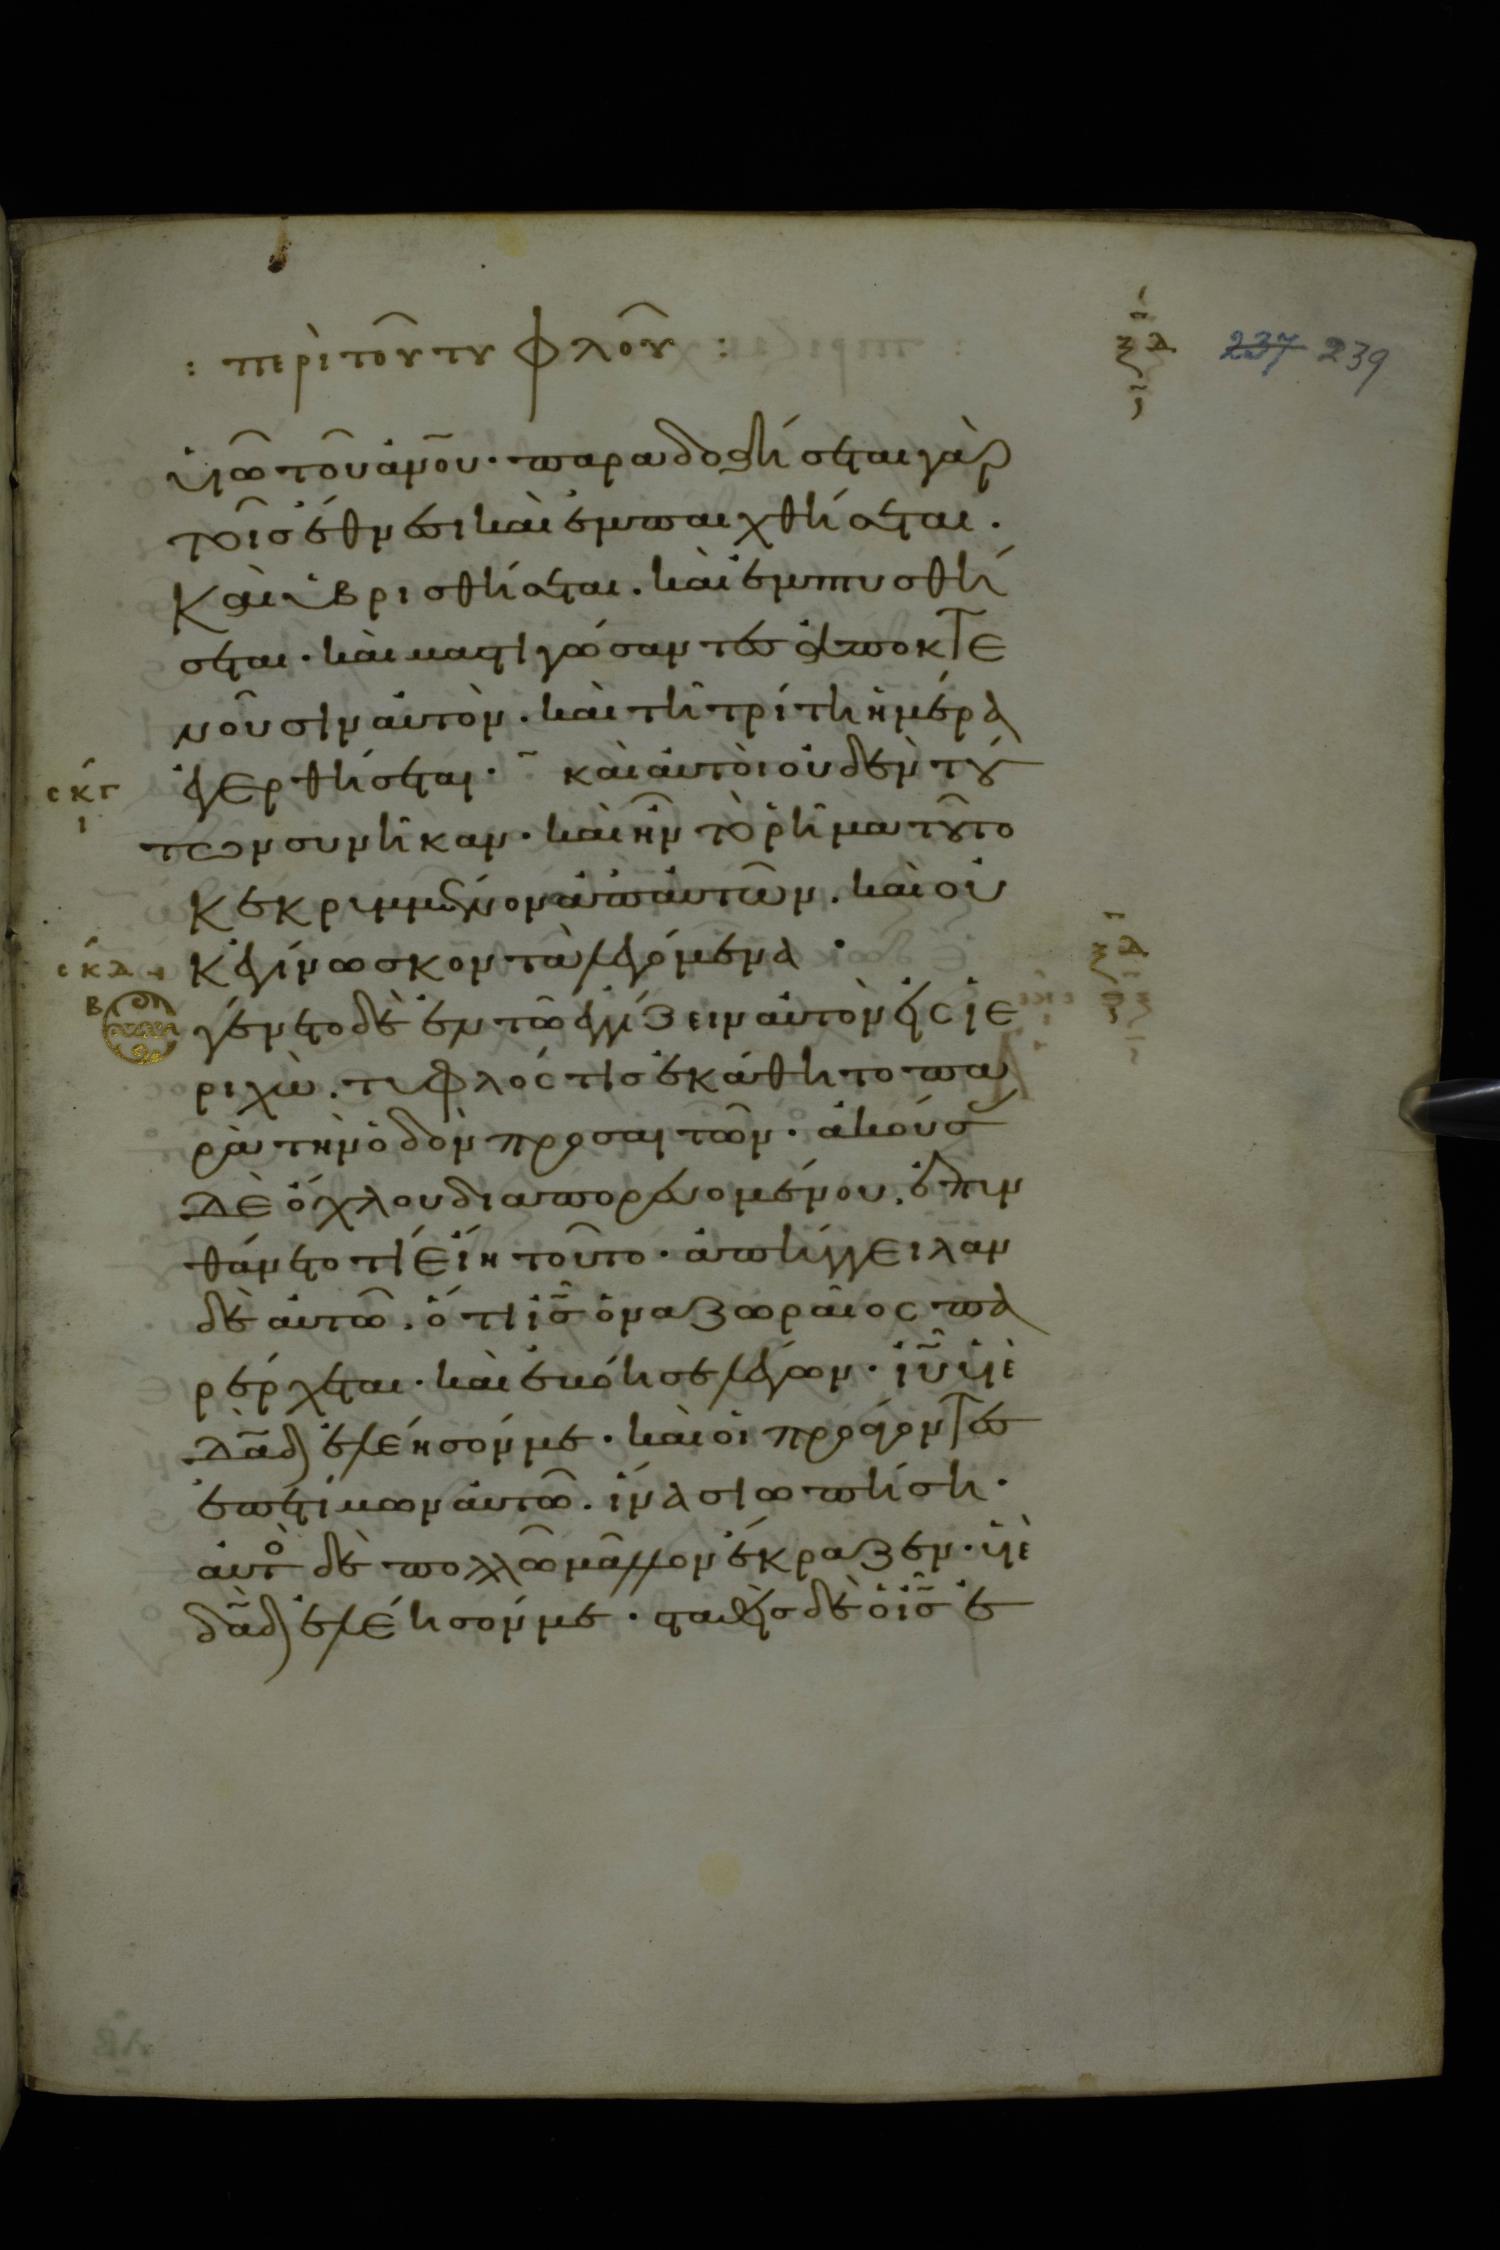 : περὶ τοῦ τυφλοῦ :
237 239
υἱῶ τοῦ ἀν̅ου· παραδοθήσεται γὰρ
τοῖσ ἔθνεσι καὶ ἐμπαιχθήσεται.
Καὶ ὑβρισθήσεται. καὶ ἐμπτυσθή
σεται· καὶ μαστιγώσαντεσ ἀποκτε
νοῦσιν αὐτὸν. καὶ τῆ τρίτη ἡμέρα
ἐγερθήσεται· καὶ αὐτοὶ οὐδὲν τού
σκγ
ι
των συνῆκαν. καὶ ἦν τὸ ῥῆμα τοῦτο
κεκριμμένον ἀπ αὐτῶν. καὶ οὐ
σκδ
Β
κ ἐγίνωσκον τὰ λεγόμενα·
γένετο δὲ ἐν τῶ ἐγγίζειν αὐτὸν εἰς ἱε
ριχὼ. τυφλός τισ ἐκάθητο πα
ρὰ τὴν ὁδὸν προσαιτῶν. ἀκούσ
δὲ ὄχλου διαπορευομένου. ἐπυν
θάνετο τί εἴη τοῦτο. ἀπήγγειλαν
δὲ αὐτῶ. ὅτι ι̅σ̅ ὁ ναζωραῖος πα
ρέρχεται. καὶ ἐβόησε λέγων· ι̅υ̅ υἱὲ
δα̅δ̅ ἐλέησόν με. καὶ οἱ προάγοντεσ
ἐπετίμων αὐτῶ. ἵνα σιωπήση.
αὐτὸ δὲ πολλῶ μᾶλλον ἔκραζεν. υἱὲ
δα̅δ̅ ἐλέησόν με. σταθεὶσ δὲ ὁ ι̅σ̅ ἐ